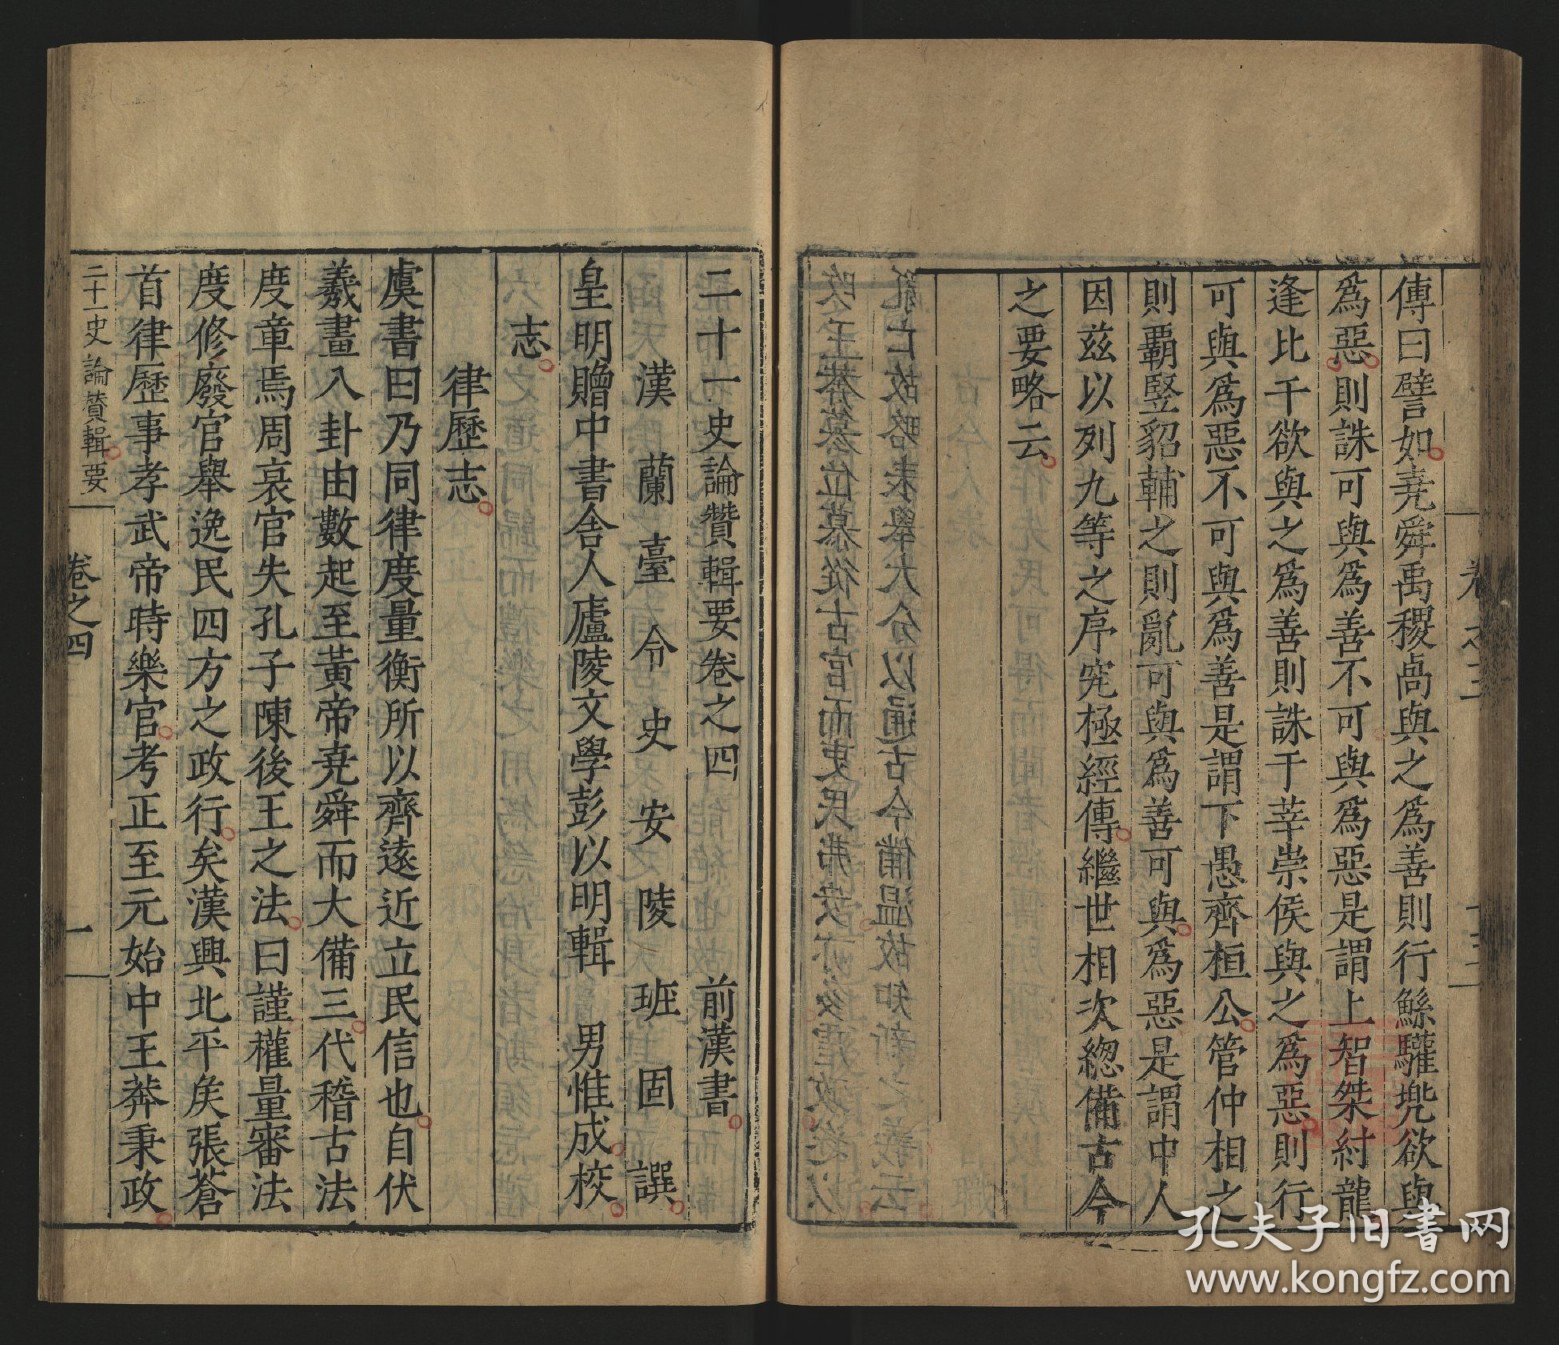 傳曰譬如堯舜禹稷卨與之爲善則行鯀驩兠欲與
爲惡則誅可與爲善不可與爲惡是謂上智桀紂龍
逢比干欲與之爲善則誅于莘崇侯與之爲惡則行
可與爲惡不可與爲善是謂下愚齊桓公管仲相之
則覇竪貂輔之則亂可與爲善可與爲惡是謂中人
因兹以列九等之序究極經傳繼世相次緫備古今
之要略云
卷之三
二十一史論贊輯要卷之四 前漢書
漢蘭臺令史安陵班固譔
皇明贈中書舍人廬陵文學彭以明輯 男惟成校
志
律歷志
虞書曰乃同律度量衡所以齊逺近立民信也自伏
羲畫八卦由數起至黃帝堯舜而大備三代稽古法
度章焉周衰官失孔子陳後王之法曰謹權量審法
度修廢官舉逸民四方之政行矣漢興北平矦張蒼
首律歷事孝武帝時樂官考正至元始中王莽秉政
二十一史論贊輯要 卷之四 一
孔夫子旧书网
www.kongfz.com